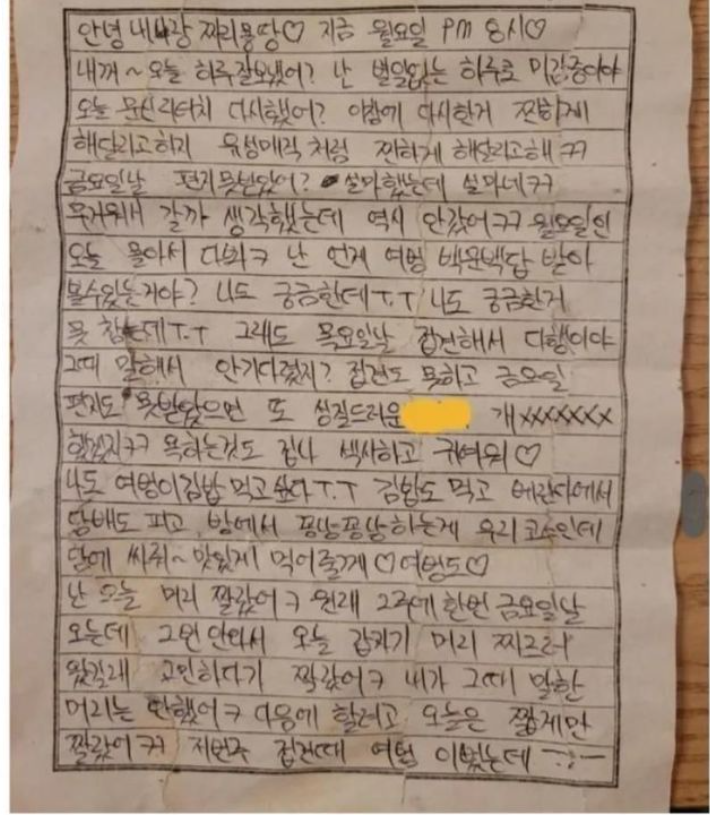 안녕 내사랑 찌리몽땅♡ 지금 월요일 PM 8시♡
내꺼~ 오늘 하루 잘보냈어? 난 별일없는 하루로 마감중이야
오늘 문신 리터치 다시했어? 아참에 다시한거 찐하게
해달라고하지 유성매직 처럼 찐하게 해달라고해 ㅋㅋ
금요일날 편지 못받았어? 설마했는데 설마네ㅋㅋ
무거워서 갈까 생각했는데 역시 안갔어ㅋㅋ 월요일인
오늘 몰아서 다봐ㅋ 난 언제 여벙 백문백답 받아
볼수있는거야? 나도 궁금한데T.T 나도 궁금한거
못 참는데T.T 그래도 목요일날 접견해서 다행이야
그때 말해서 안기다렸지? 접견도 못하고 금요일
편지도 못받았으면 또 성질드러운 개xxxxxxx
했겠지ㅋㅋ 욕하는것도 섹시하고 귀여워♡
나도 여벙이김밥 먹고싶다T.T 김밥도 먹고 베란다에서
담배도 피고 방에서 퐁빵퐁빵하는게 우리 코스인데
담에 싸줘~ 맛있게 먹어줄게♡ 여벙도♡
난 오늘 머리 짤랐어ㅋ 원래 2주에 한번 금요일날
오는데 그땐 안와서 오늘 갑자기 머리 찌르러
왔길래 고민하다가 짤랐어ㅋ 내가 그때 말한
머리는 안했어ㅋ 다음에 할려고 오늘은 짧게만
짤랐어ㅋㅋ 저번주 접견때 여벙 이뻤는데